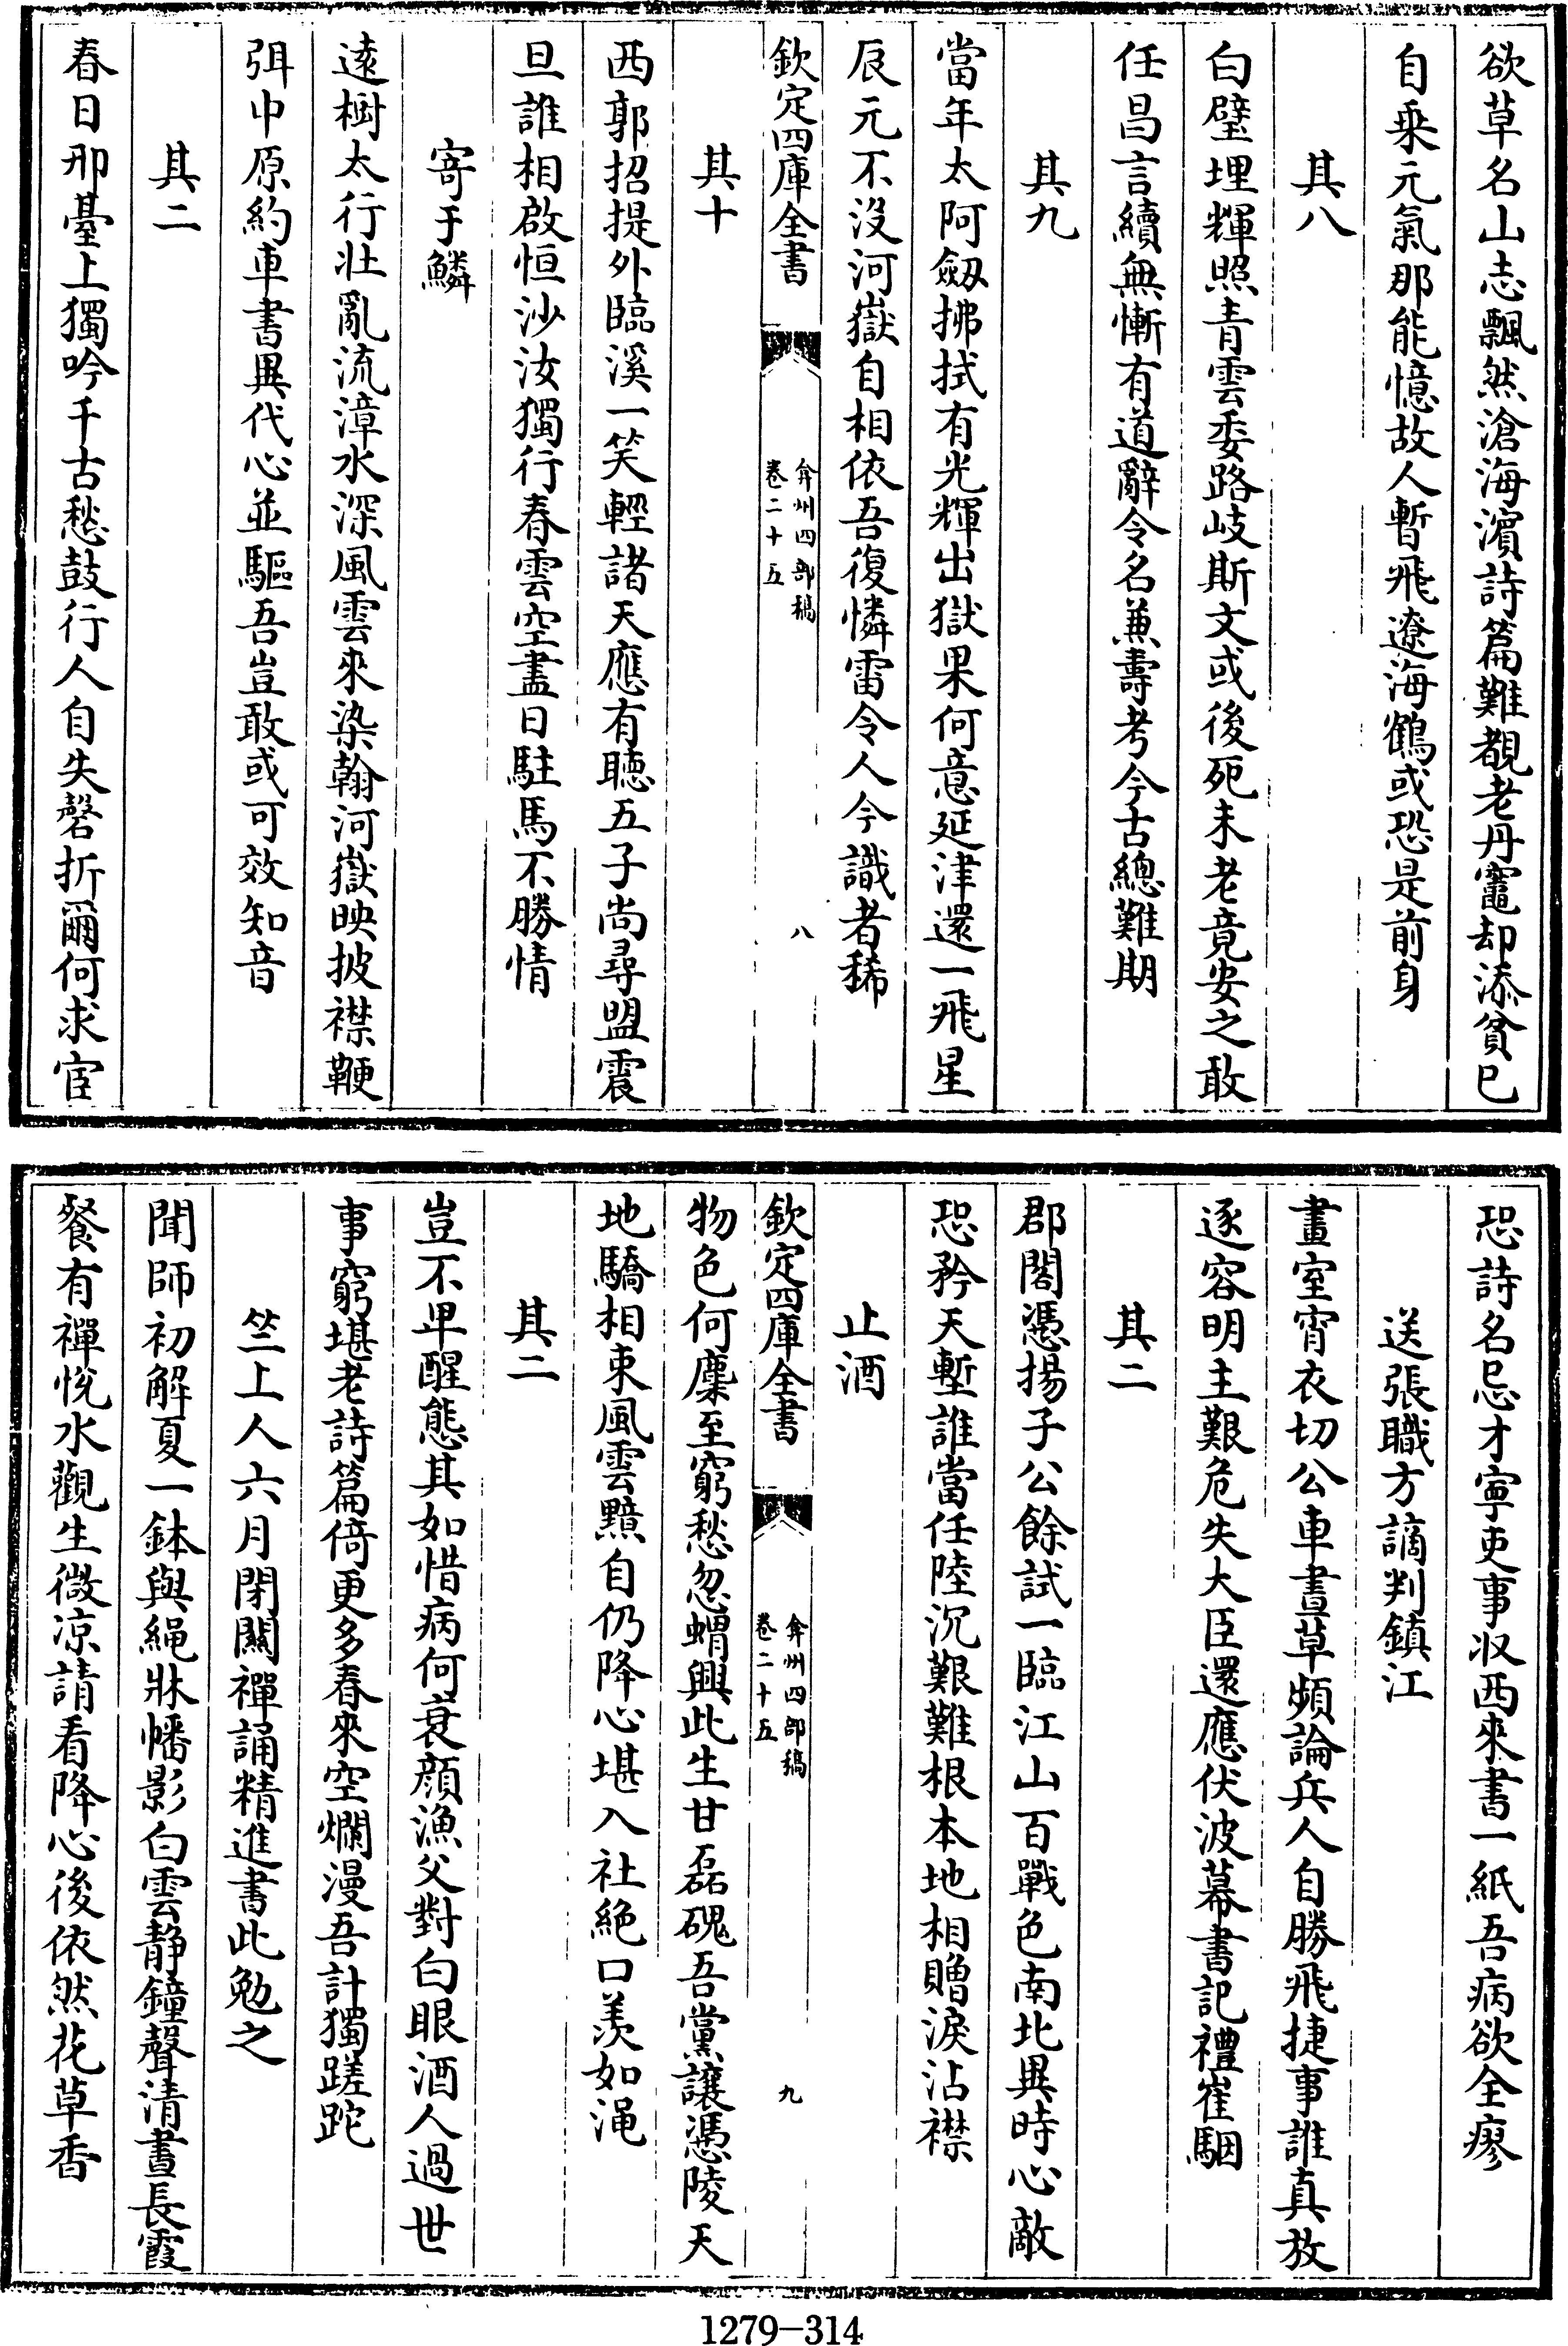 欲草名山志飄然滄海濱詩篇難覩老丹竈却添貧已
自乗元氣那能憶故人暫飛遼海鶴或恐是前身
其八
白璧埋輝照青雲委路岐斯文或後死未老竟安之敢
任昌言續無慚有道辭令名兼壽考今古總難期
其九
當年太阿劔拂拭有光輝出獄果何意延津還一飛星
辰元不沒河嶽自相依吾復憐雷令人今識者稀
欽定四庫全書
弇州四部稿
卷二十五
八
其十
西郭招提外臨溪一笑輕諸天應有聽五子尚尋盟震
旦誰相啟恒沙汝獨行春雲空盡日駐馬不勝情
寄于鱗
遠樹太行壯亂流漳水深風雲來染翰河嶽映披襟鞭
弭中原約車書異代心並驅吾豈敢或可效知音
其二
春日邢臺上獨吟千古愁鼓行人自失磬折爾何求宦
恐詩名忌才寧吏事収西來書一紙吾病欲全瘳
送張職方謫判鎮江
畫室宵衣切公車晝草頻論兵人自勝飛捷事誰真放
逐容明主艱危失大臣還應伏波幕書記禮崔駰
其二
郡閣憑揚子公餘試一臨江山百戰色南北異時心敵
恐矜天塹誰當任陸沉艱難根本地相贈淚沾襟
止酒
欽定四庫全書
弇州四部稿
卷二十五
九
物色何麋至窮愁忽蝟興此生甘磊磈吾黨讓憑陵天
地驕相束風雲黯自仍降心堪入社絕口羨如澠
其二
豈不早醒態其如惜病何衰顔漁父對白眼酒人過世
事窮堪老詩篇倚更多春來空爛漫吾計獨蹉跎
竺上人六月閉關禪誦精進書此勉之
聞師初解夏一鉢與繩牀幡影白雲静鐘聲清晝長霞
餐有禪悅水觀生微凉請看降心後依然花草香
1279-314